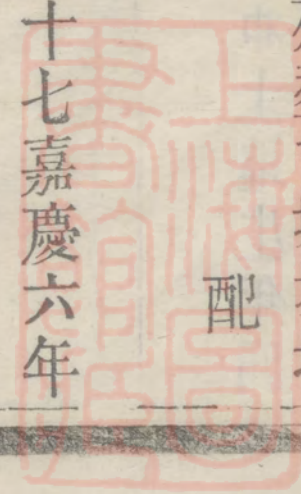 配
十七嘉慶六年
上海圖書館藏